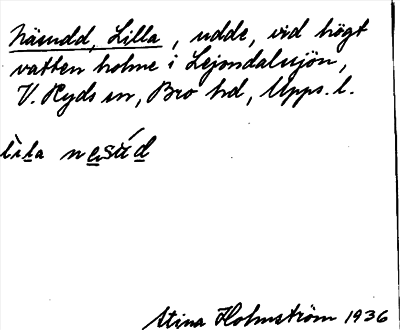 Näsudd, Lilla, udde, vid högt
vatten holme i Lejondalssjön,
V. Ryds sn, Bro hd, Upps. l.
lìla nesúd
Stina Holmström 1936